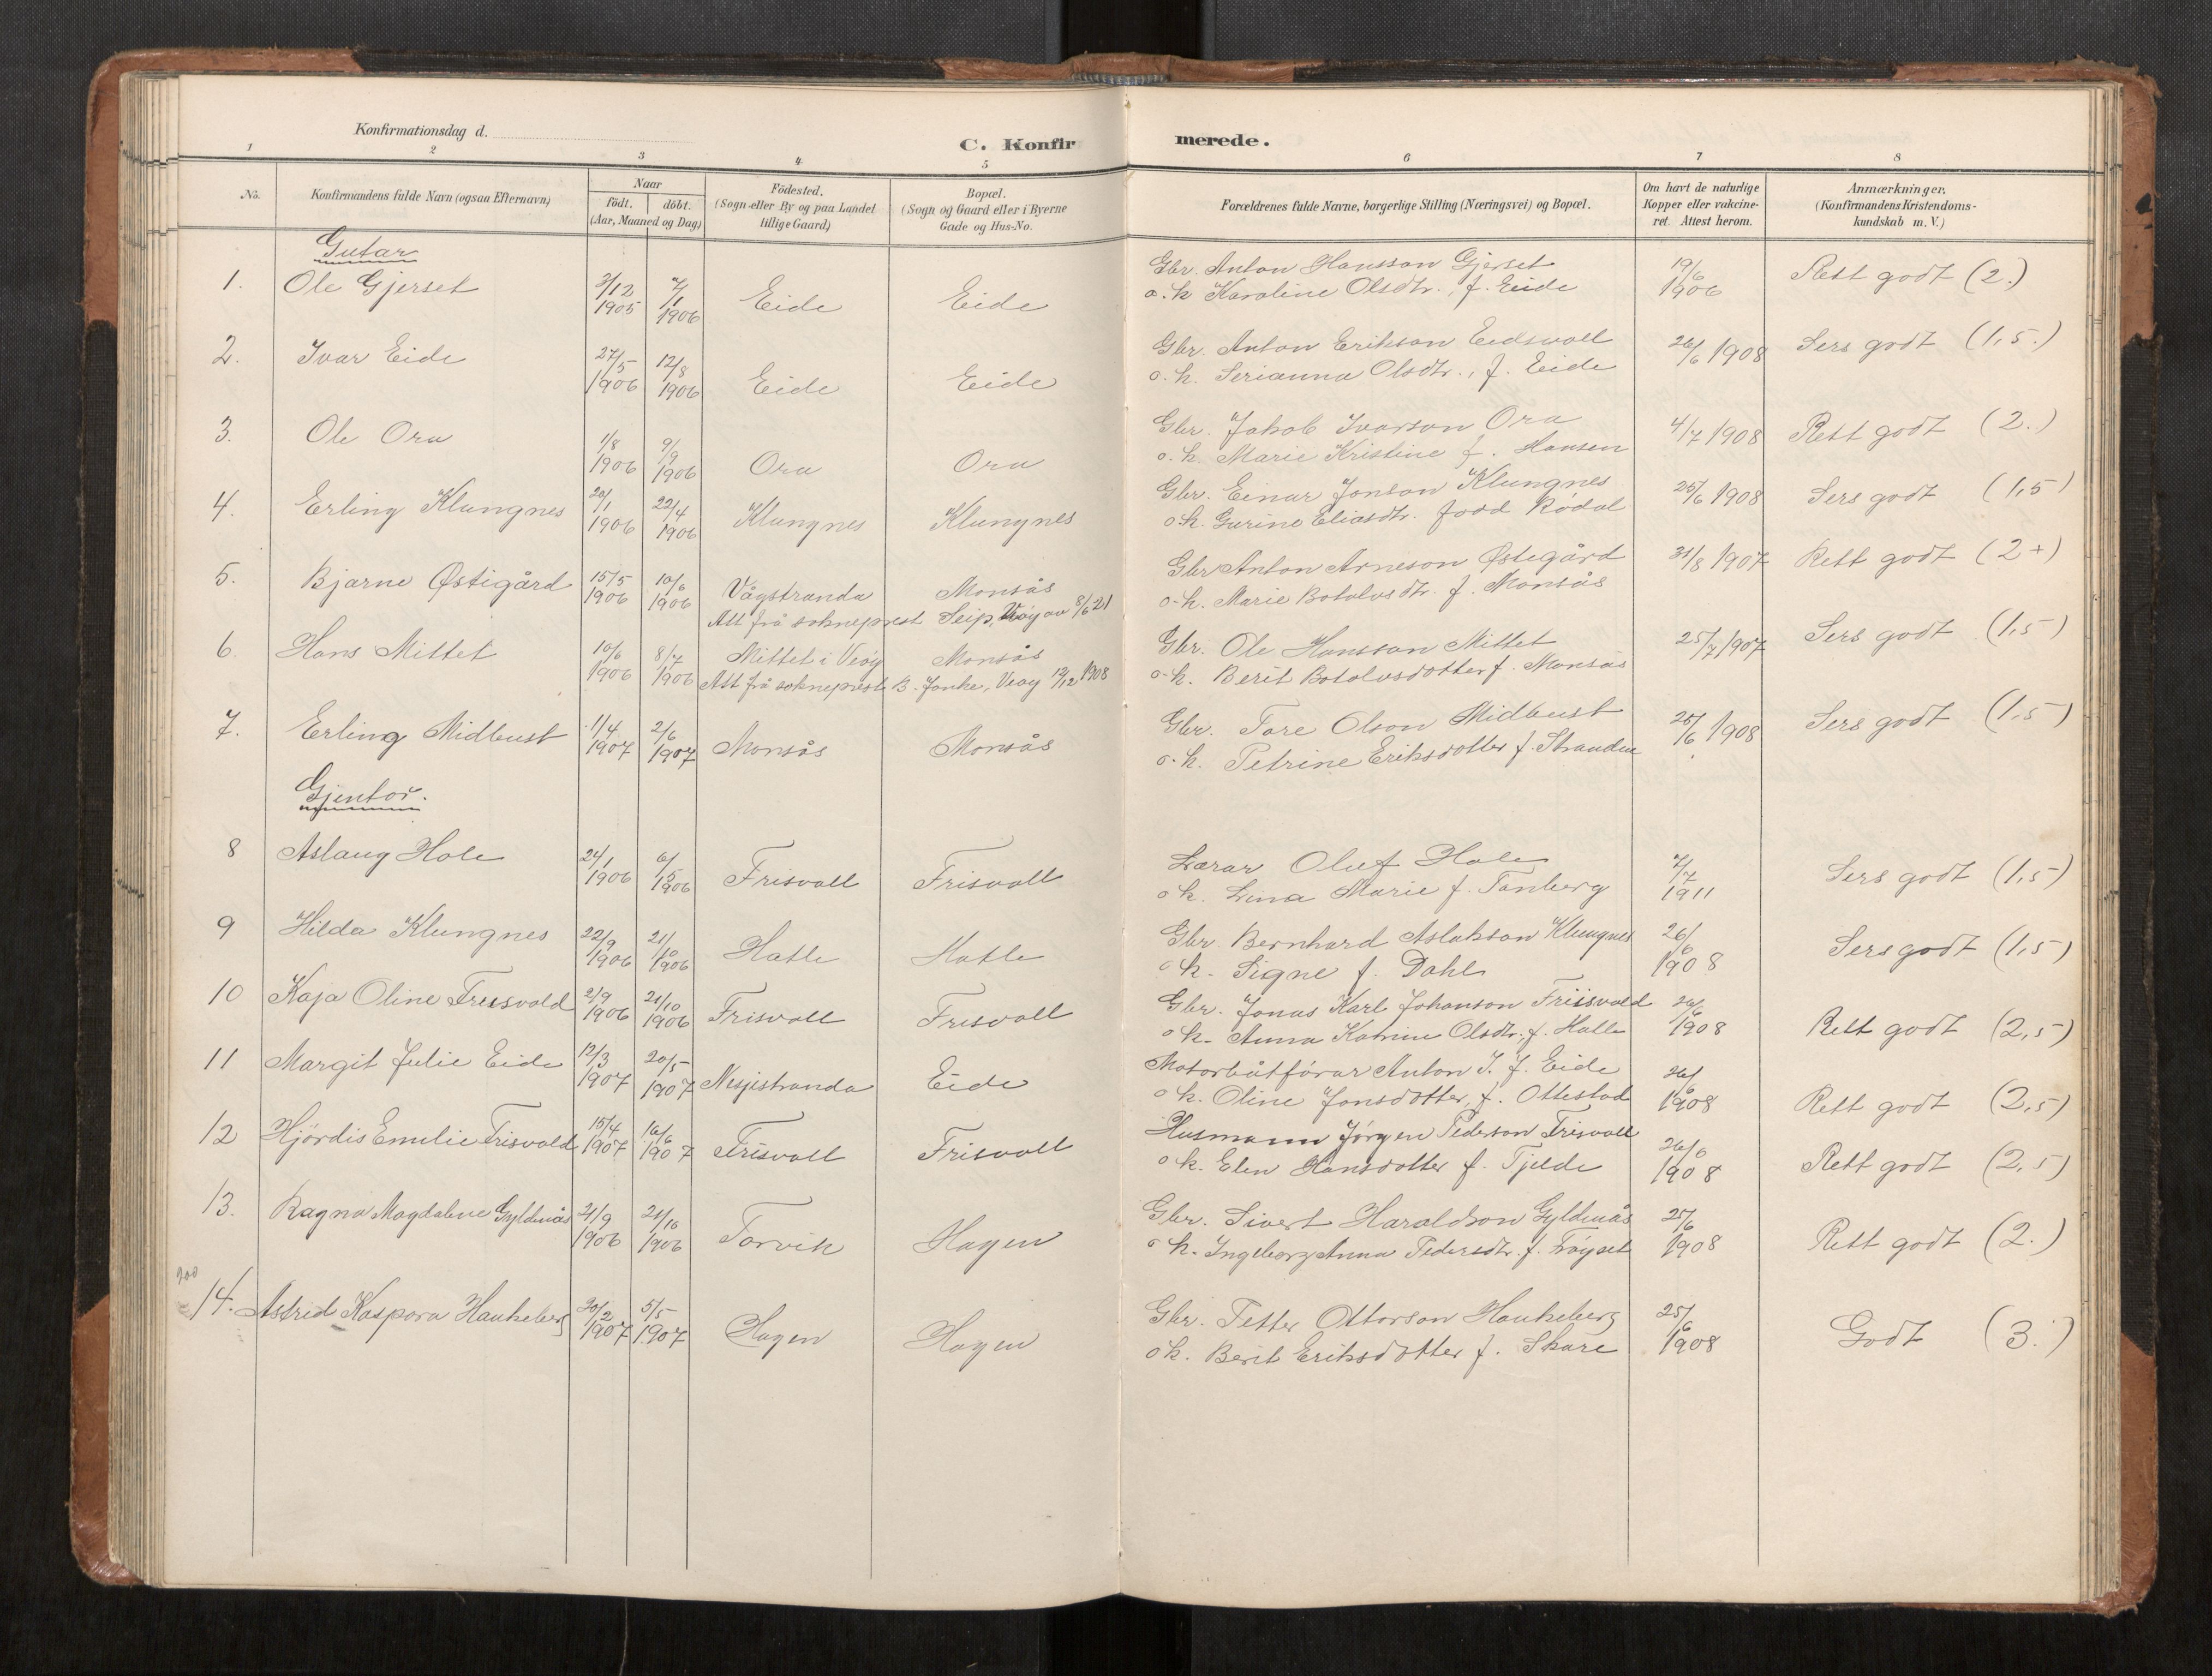 Konfirmationsdag d.
C. Konfirmerede.
1 2 3 4 5 6 7 8
No.
Konfirmandens fulde Navn (ogsaa Efternavn)
Naar
födt. döbt.
(Aar, Maaned og Dag)
Födested.
(Sogn eller By og paa Landet
tillige Gaard)
Bopæl.
(Sogn og Gaard eller i Byerne
Gade og Hus-No.
Forældrenes fulde Navne, borgerlige Stilling (Næringsvei) og Bopæl.
Om havt de naturlige
Kopper eller vakcine-
ret. Attest herom.
Anmærkninger.
(Konfirmandens Kristendoms-
kundskab m. V.)
Gutar
1. Ole Gjerset 3/12 1905 7/1 1906 Eide Eide
Gbr. Anton Hansson Gjerset
o. k Karoline Olsdtr., f. Eide
19/6 1906 Rett godt (2.)
2. Ivar Eide 27/5 1906 12/8 1906 Eide Eide
Gbr. Anton Erikson Eidsvoll
o. k. Serianna Olsdtr., f. Eide
26/6 1908 Sers godt (1,5.)
3. Ole Ora 1/8 1906 9/9 1906 Ora Ora
Gbr. Jakob Ivarson Ora
o. k. Marie Kristine f. Hansen
4/7 1908 Rett godt (2.)
4. Erling Klungnes 20/1 1906 22/4 1906 Klungnes Klungnes
Gbr. Einar Jonson Klungnes
o. k. Gurine Eliasdtr. fødd Rødal
25/6 1908 Sers godt (1,5)
5. Bjarne Østigård 15/5 1906 10/6 1906 Vågstranda Monsås
Att frå sokneprest Seip, Veøy av 8/6 21
Gbr Anton Arneson Østegård
o. k. Marie Botolvsdtr. f. Monsås
31/8 1907 Rett godt (2+)
6. Hans Mittet 10/6 1906 8/7 1906 Mittet i Veøy Monsås
Att frå sokneprest B. Janke, Veøy 19/12 1908
Gbr. Ole Hansson Mittet
o. k. Berit Botolvsdotter f. Monsås
25/7 1907 Sers godt (1,5)
7. Erling Midbust 11/4 1907 2/6 1907 Monsås Monsås
Gbr. Tore Olson Midbust
o. k. Petrine Eriksdotter f. Strandne
25/6 1908 Sers godt (1,5)
Gjentor.
8 Aslaug Hole 24/1 1906 6/5 1906 Frisvoll Frisvoll
Lærar Oluf Hole
o k. Lina Marie f. Tanberg
7/7 1911 Sers godt (1,5)
9 Hilda Klungnes 22/9 1906 21/10 1906 Hatle Hatle
Gbr. Bernhard Aslakson Klungnes
o k. Signe f. Dahl
26/6 1908 Sers godt (1,5)
10 Kaja Oline Friisvold 2/9 1906 21/10 1906 Frisvoll Frisvoll
Gbr. Jonas Karl Johanson Friisvold
o k. Anna Katrine Olsdtr., f. Hatle
26/6 1908 Rett godt (2,5)
11 Margit Julie Eide 12/3 1907 20/5 1907 Nesjestranda Eide
Motorbåtførar Anton J. f. Eide
o k. Oline Jonsdotter, f. Ottestad
26/6 1908 Rett godt (2,5)
12 Hjördis Emelie Frisvold 15/4 1907 16/6 1907 Frisvoll Frisvoll
Husmann Jörgen Pederson Frisvoll
o k. Elen Hansdotter f. Tjelde
26/6 1908 Rett godt (2,5)
13. Ragna Magdalene Gyldenås 21/9 1906 21/10 1906 Torvik Hagen
Gbr. Sivert Haraldson Gyldenås
o k. Ingeborg Anna Pedersdtr. f. Frøyset
25/6 1908 Rett godt (2.)
200
14. Astrid Kaspora Haukeberg 20/2 1907 5/5 1907 Hagen Hagen
Gbr. Petter Ottorson Haukeberg
o k. Berit Eriksdotter f. Skare
25/6 1908 Godt (3.)